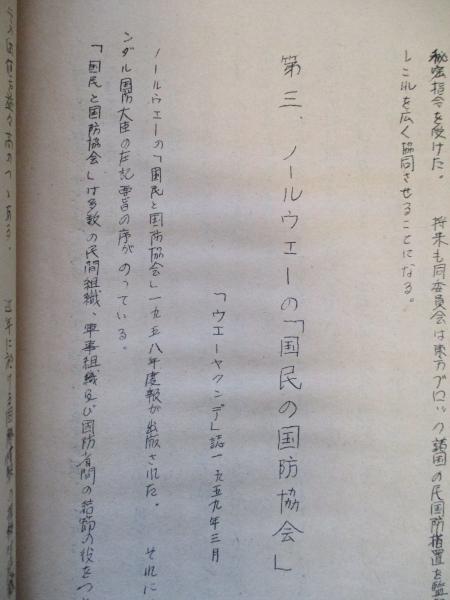 秘密指令を受けた。　将来も同委員会は東方ブロック諸国の民国防措置を監
しこれを広く協同させることになる。
第三、ノールウエーの「国民の国防協会」
「ウエーヤクンデ」誌一九五九年三月
ノールウエーの「国民と国防協会」一九五八年度報が出版された。　それに
ンダル国防大臣の左記要旨の序がのっている。
「国民と国防協会」は多数の民間組織、軍事組織及び国防省間の結節の役をつ